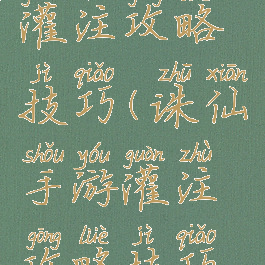 灌注攻略
jì qiǎo zhū xiān
技巧(诛仙
shǒu yóu guàn zhù
手游灌注
gōng lüè jì qiǎo
攻略技巧